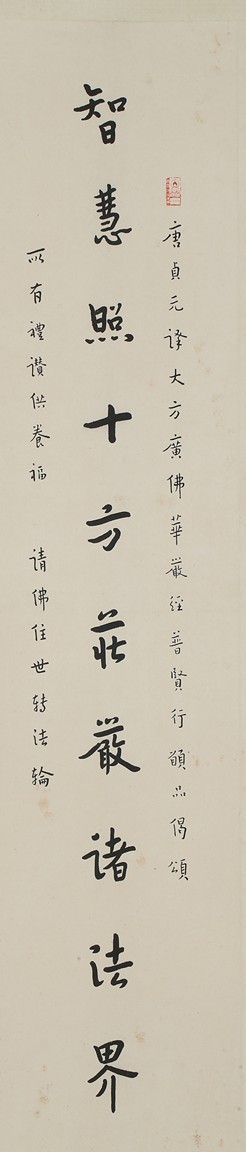 唐貞元譯大方廣佛華嚴經普賢行願品偈頌
智慧照十方莊嚴諸法界
所有禮讚供養福　請佛住世轉法輪